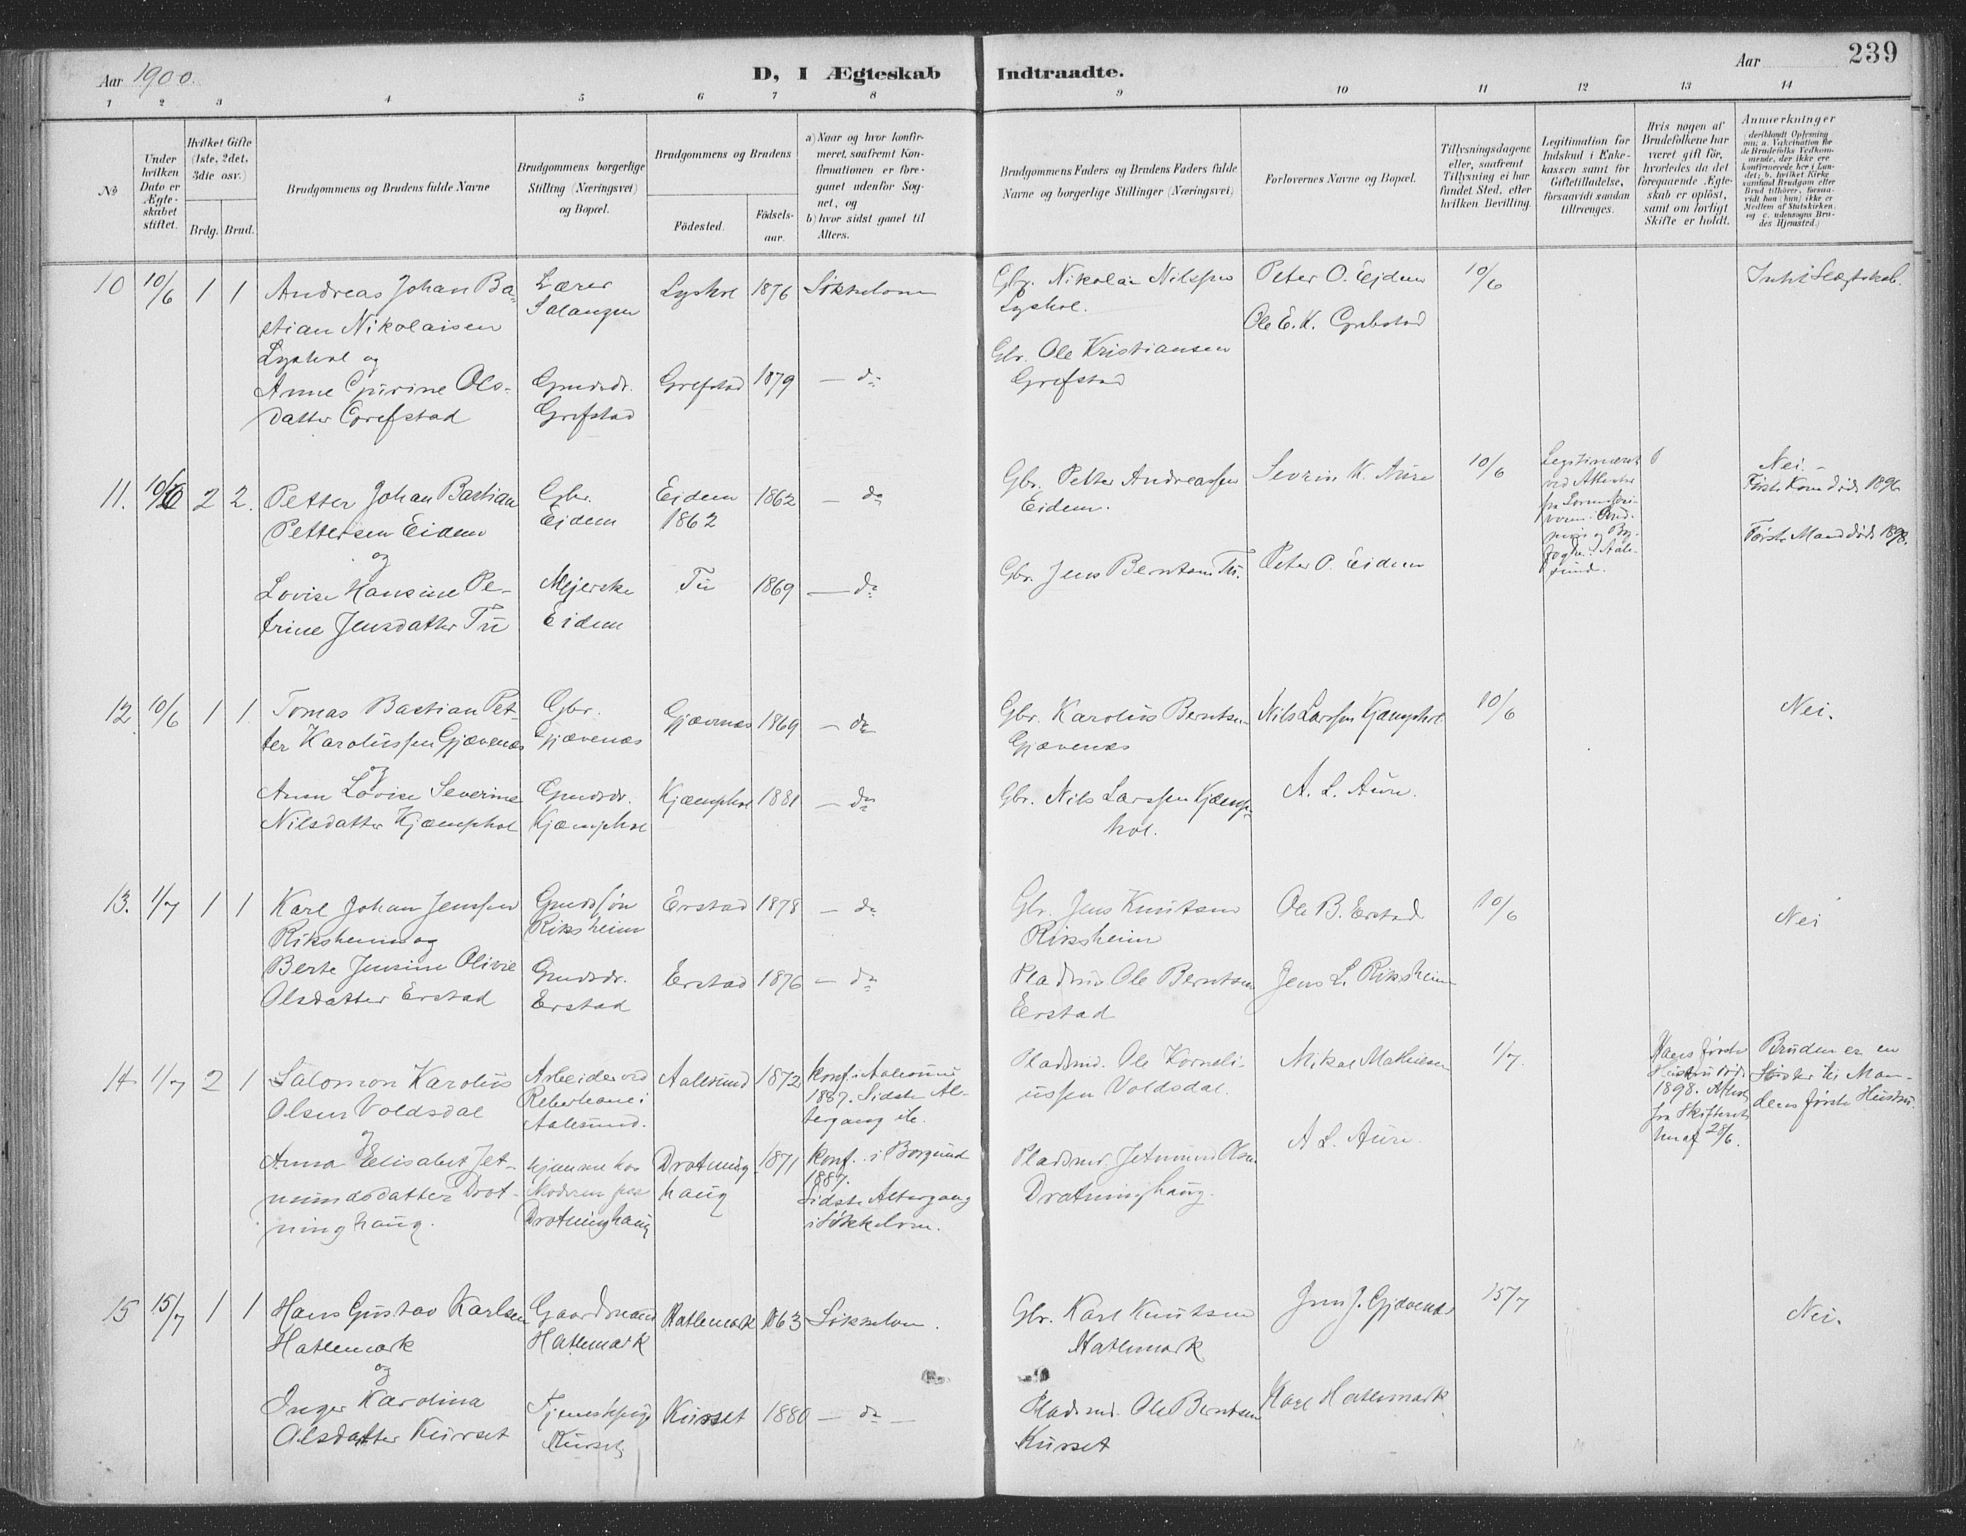 Aar 1900.
D, I Ægteskab
Indtraadte.
Aar
239
1 2 3 4 5 6 7 8 9 10 11 12 13 14
No
Under hvilken Dato er Ægteskabet stiftet.
Hvilket Gifte (1ste, 2det, 3die osv.)
Brdg. Brud.
Brudgommens og Brudens fulde Navne
Brudgommens borgerlige Stilling (Næringsvei) og Bopæl.
Brudgommens og Brudens
Födested.
Födsels-aar.
a) Naar og hvor konfirmeret, saafremt Konfirmationen er foregaaet udenfor Sognet, og
b) hvor sidst gaaet til Alters.
Brudgommens Faders og Brudens Faders fulde Navne og borgerlige Stillinger (Næringsvei)
Forlovernes Navne og Bopæl.
Tillysningsdagene eller, saafremt Tillysning ei har fundet Sted, efter hvilken Bevilling.
Legitimation for Indskud i Enkekassen samt for Giftetilladelse, forsaavidt saadan tiltrænges.
Hvis nogen af Brudefolkene har været gift för, hvorledes da det foregaaende Ægteskab er oplöst, samt om lovligt Skifte er holdt.
Anmerkninger
10 10/6 1 1
Andreas Johan Ba-
stian Nikolaisen
Lyshol og
Anne Gurine Ols-
datter Grefstad
Lærer
Salangen
Gmdsdr.
Grefstad
Lyshol 1876 Søkkelven
Grefstad 1879 — do
Gbr. Nikolai Nilssen
Lyshol.
Gbr. Ole Kristiansen
Grefstad
Peter O. Eidem
Ole E. K. Grebstad
10/6
Intet Slægtskab.
11. 10/6 2 2.
Petter Johan Bastian
Pettersen Eidem
og
Lovise Hansine Pe-
trine Jensdatter Tu
Gbr.
Eidem
Mejerske
Eidem
Eidem 1862
1862
— do
Tu 1869 — do
Gbr. Petter Andreassen
Eidem.
Gbr. Jens Berntsen Tu.
Severin K. Aure
Peter O. Eidem
10/6
Nei.
Første Kone død 1896
Første Mand død 1898.
12 10/6 1 1.
Tomas Bastian Pet-
ter Karolussen Gjævenæs
og
Anna Lovise Severine
Nilsdatter Kjæmphol
Gbr.
Gjævenæs
Gmdsdr.
Kjæmphol
Gjævenæs 1869 — do
Kjæmphol 1881 — do
Gbr. Karolus Berntsen
Gjævenæs
Gbr. Nils Larssen Kjæmp-
hol.
Nils Larssen Kjæmphol
A. L. Aure.
10/6
Nei.
13. 1/7 1 1
Karl Johan Jenssen
Riksheim og
Berte Jensine Olivie
Olsdatter Erstad
Gmdssøn
Riksheim
Gmdsdr.
Erstad
Erstad 1878 — do
Erstad 1876 — do
Gbr. Jens Knutsen
Riksheim
Pladsm. Ole Berntsen
Erstad
Ole B. Erstad
Jens L. Riksheim
10/6
Nei
14 1/7 2 1
Salomon Karolus
Olsen Voldsdal
og
Anna Elisabet Jet-
mundsdatter Drot-
ninghaug.
Arbeider ved
Reberbane i
Aalesund.
hjemme hos
Moderen paa
Drotninghaug
Aalesund 1872
Drotning-
haug
1871
Konf. i Aalesund
1887. Sidste Al-
tergang
Konf. i Borgund
1887.
Sidste Altergang
i Søkkelven.
Pladsmd. Ole Korneli-
ussen Voldsdal.
Pladsmd. Jetmund Olsen
Drotninghaug.
Mikal Mathisen
A L. Aure.
1/7
Hans første
Hustru død
1898. Attest
fra Skifteret-
ten af 28/6.
Bruden er en
Søster til Man-
dens første Hustru.
15 15/7 1 1
Hans Gustav Karlsen
Hatlemark
og
Inger Karolina
Olsdatter Kurset
Gaardmand
Hatlemark
Tjenestepige
Kurset
Hatlemark 1863 Søkkelven.
Kurset 1880 — do —
Gbr. Karl Knutsen
Hatlemark
Pladsmd. Ole Berntsen
Kurset
Jens J. Gjævenæs
Karl Hatlemark
15/7
Nei.